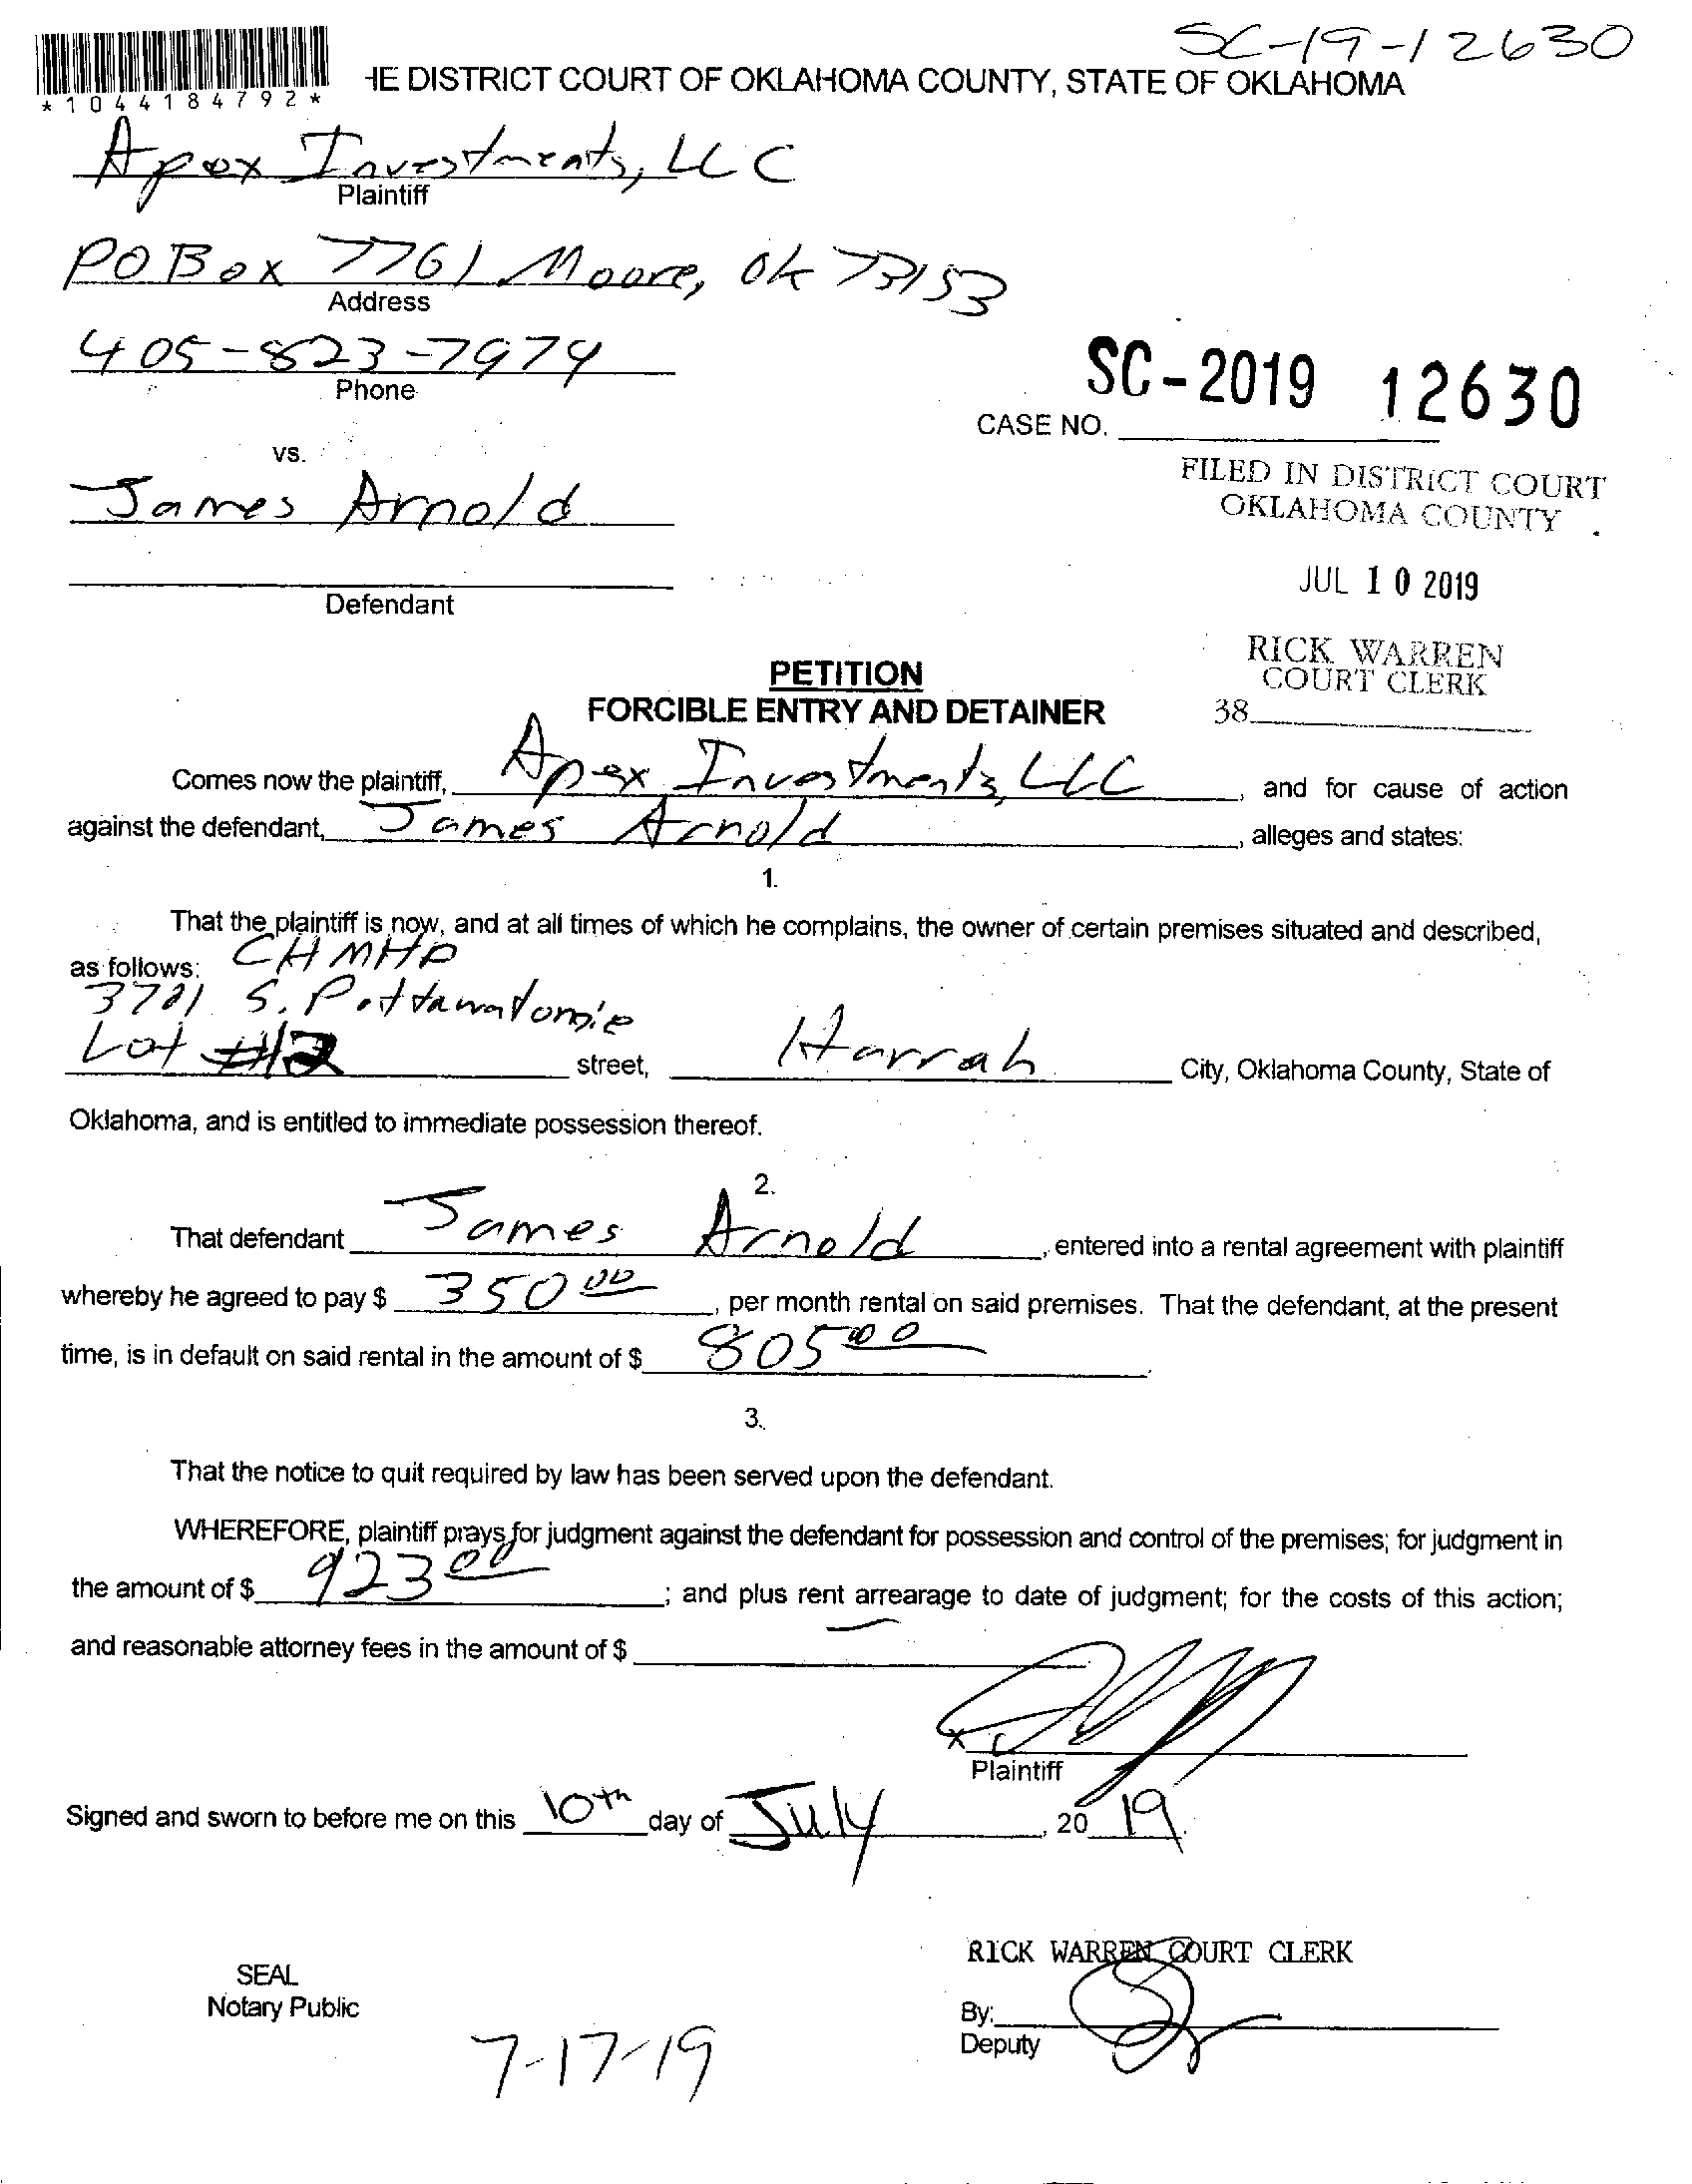 SC-19-12630
*1044184792*
HE DISTRICT COURT OF OKLAHOMA COUNTY, STATE OF OKLAHOMA
Apex Investments, LLC
Plaintiff
PO Box 7761 Moore, Ok 73153
Address
405-823-7974
Phone
SC-2019 12630
CASE NO.
vs.
FILED IN DISTRICT COURT
OKLAHOMA COUNTY
James Arnold
JUL 10 2019
Defendant
RICK WARREN
COURT CLERK
38
PETITION
FORCIBLE ENTRY AND DETAINER
Comes now the plaintiff, Apex Investments, LLC, and for cause of action
against the defendant, James Arnold, alleges and states:
1.
That the plaintiff is now, and at all times of which he complains, the owner of certain premises situated and described,
as follows: CHMHP
3701 S. Pottawatomie
Lot #12 street, Harrah City, Oklahoma County, State of
Oklahoma, and is entitled to immediate possession thereof.
2.
That defendant James Arnold, entered into a rental agreement with plaintiff
whereby he agreed to pay $ 350 00, per month rental on said premises. That the defendant, at the present
time, is in default on said rental in the amount of $ 805 00.
3.
That the notice to quit required by law has been served upon the defendant.
WHEREFORE, plaintiff prays for judgment against the defendant for possession and control of the premises; for judgment in
the amount of $ 923 00; and plus rent arrearage to date of judgment; for the costs of this action;
and reasonable attorney fees in the amount of $
X
Plaintiff
Signed and sworn to before me on this 10th day of July, 20 19.
RICK WARREN COURT CLERK
SEAL
Notary Public
By:
Deputy
7-17-19